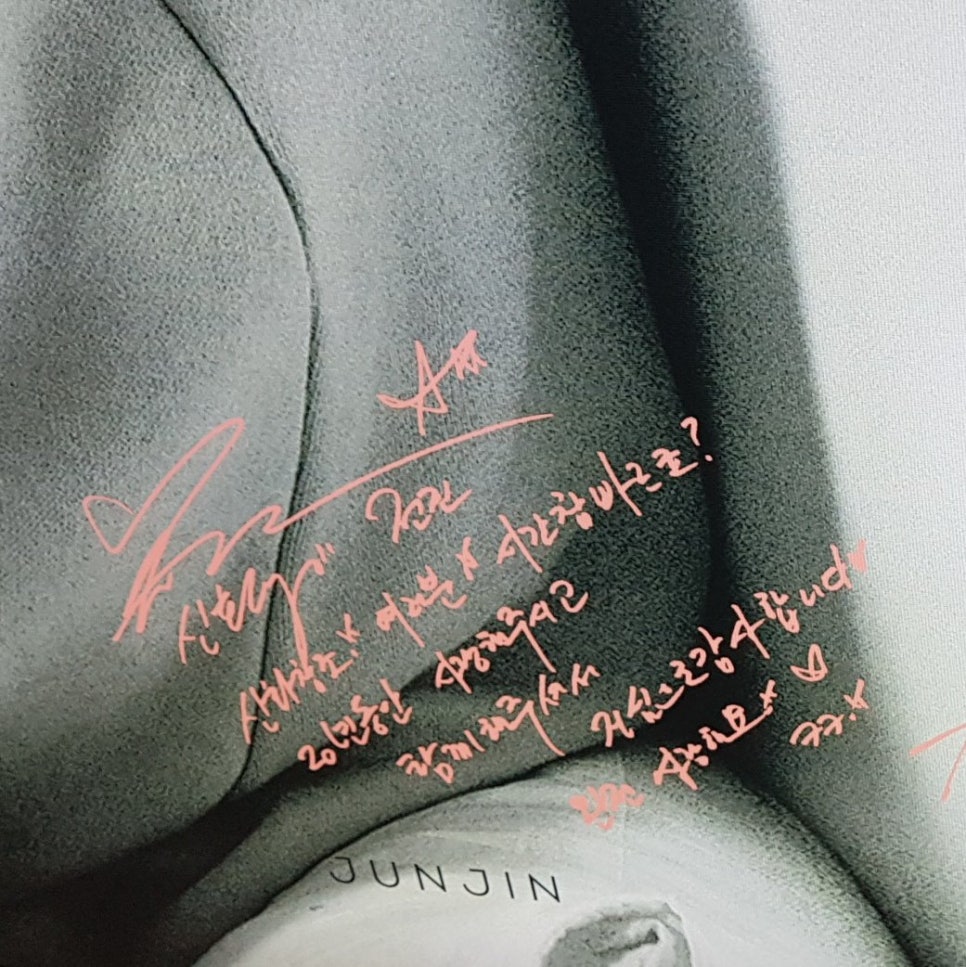 전진
신화
신화창조!! 여러분!! 시간 참 빠르죠?
20년동안 사랑해주시고
함께해주셔서 진심으로 감사합니다♥
사랑해요!! ♡
JUNJIN